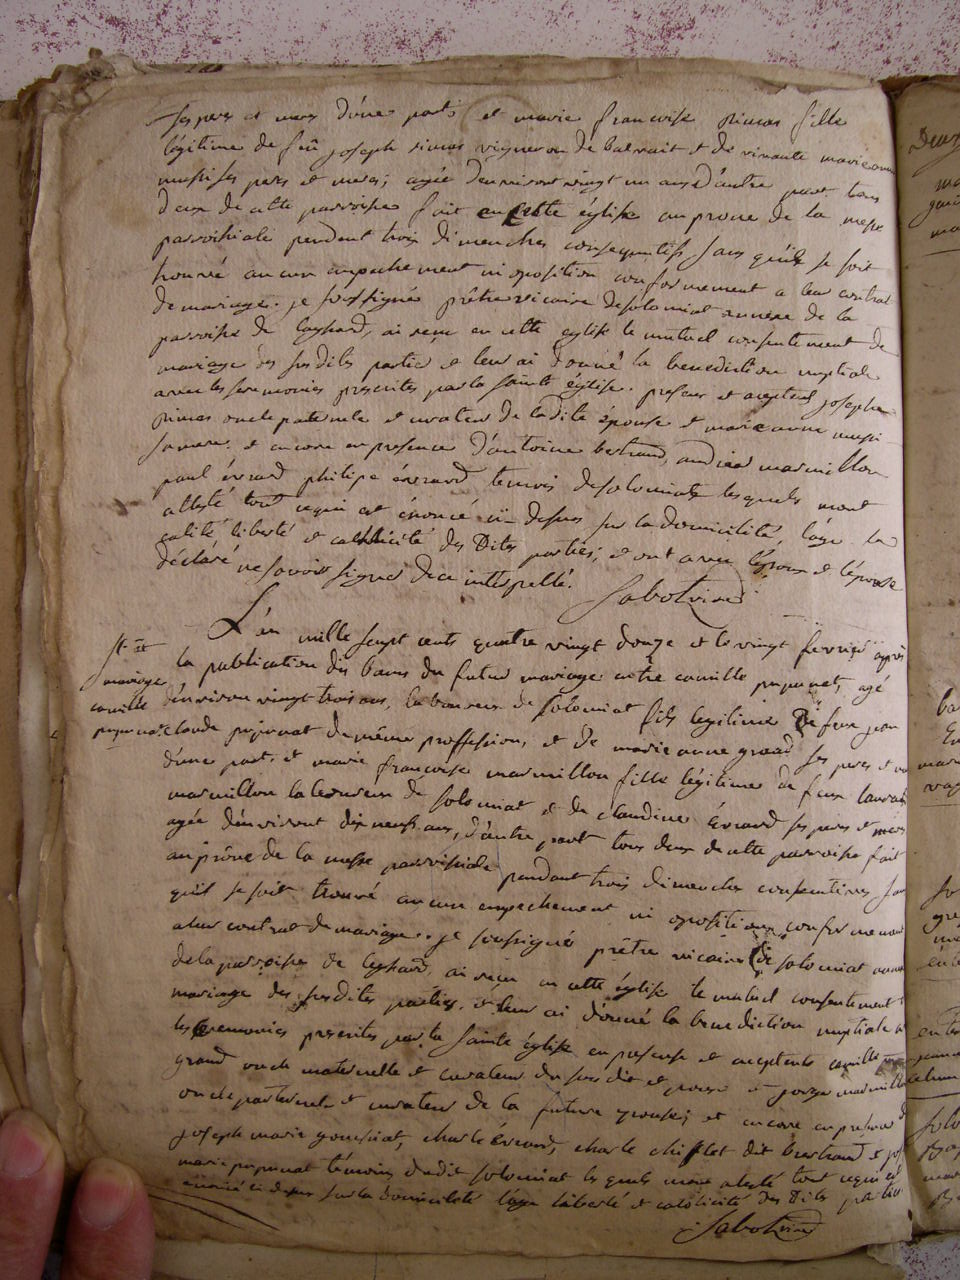 ses pere et mere d'une part et marie françoise pinas fille
légitime de feu joseph pinas vigneron de et de vivante marie anne
ses pere et mere; agée d'environt vingt un ans d'autre part tous
deux de cette parroisse fait en cette église au prone de la messe
parroissiale pendent trois dimenches consequutifs sans qu'ils se soit
trouvé aucun anpechement ni oposition conformement a leur contrat
de mariage. je soussigné prêtre vicaire de solomiat annexe de la
parroisse de leyssard, ai reçu en cette église le mutuel consentement de
mariage des susdits partie et leur ai donné la benediction nuptiale
avec les seremonies prescrites par la sainte église. presens et aceptens joseph
pinas oncle paternele et curateur de la dite épouse et marie anne
sa mere. et encore en presence d'antoine bertrand, andrée marmillon
paul évrard philipe évrard temois de solomiat lesquels mont
attesté tout cequi est énoncé ci desus sur la domicilité, l'age la
calité liberté et catolicité des Dites parties; et ont avec l'époux et l'épouse
déclaré ne savoir signer de ce interpellé.
Sabot vicaire
L'an mille sept cents quatre vingt douze et le vingt fevrier après
mariage
camille
la publication des bans du futur mariage entre camille pujonat, agé
d'environ vingt trois ans, laboureur de solomiat fils legitime de feux jean
claude pujonat de même proffession, et de marie anne grand ses pere et
d'une part, et marie françoise marmillon fille légitime de feux
marmillon laboureur de solomiat et de claudine évrard ses pere et mere
agée d'environt dix neuf ans, d'autre part tous deux de cette parroisse fait
au prône de la messe parroissiale pendant trois dimenches consecutives
qu'il se soit trouvé aucun empechement ni oposition conformement
a leur contrat de mariage. je soussigné prêtre vicaire de solomiat
de la parroisse de leyssard, ai reçu en cette église le mutuel consentement
mariage des susdites parties, et leur ai donné la benediction nuptiale
les seremonies prescrites par la sainte église en presense et aceptents camille
grand oncle maternelle et curateur du susdit et marmillon
oncle paternele et curateur de la future épouse; et encore en presence
joseph marie goussiat, charle évrard, charle chifflet dit bertrand et
marie pujonat témoins dudit solomiat les quels mont atesté tout cequi é
énoncé ci desus sur la domicilité l'age liberté et catolicité des Dites parties
Sabot vicaire